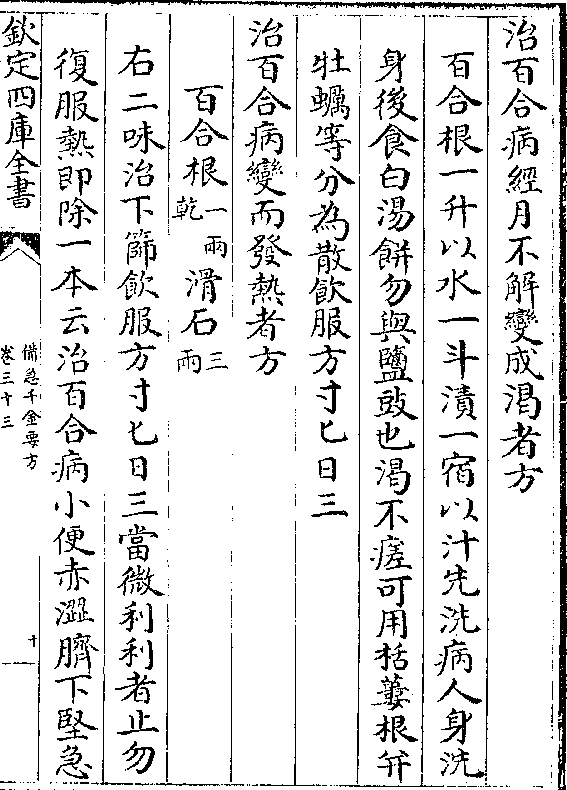 治百合病經月不解變成渇者方
百合根一升以水一斗漬一宿以汁先洗病人身洗
身後食白湯餅勿與鹽豉也渴不瘥可用栝蔞根并
牡蠣等分為散飲服方寸匕日三
治百合病變而發熱者方
百合根一兩乾滑石三兩
右二味治下篩飲服方寸匕日三當微利利者止勿
復服熱即除一本云治百合病小便赤澀臍下堅急
欽定四庫全書
備急千金要方
卷三十三
十